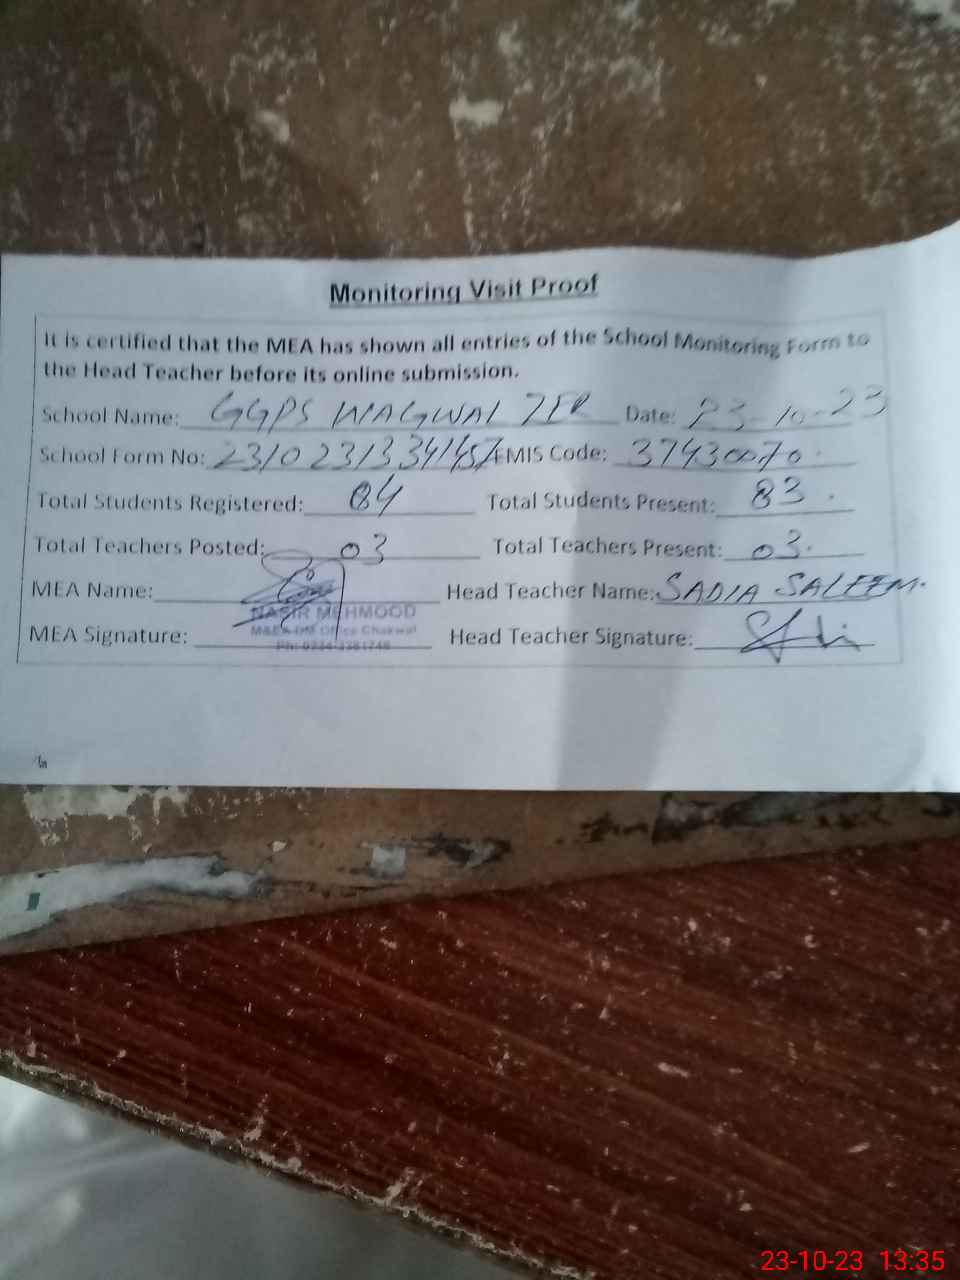 Monitoring Visit Proof
It is certified that the MEA has shown all entries of the School Monitoring Form to
the Head Teacher before its online submission.
School Name: GGPS WAGWAL ZER Date: 23-10-23
School Form No: EMIS Code: 37430070
Total Students Registered: 84 Total Students Present: 83
Total Teachers Posted: 03 Total Teachers Present: 03
MEA Name: Head Teacher Name: SADIA SALEEM
NASIR MEHMOOD
M&EA DM Office Chakwal
MEA Signature: Head Teacher Signature:
23-10-23 13:35